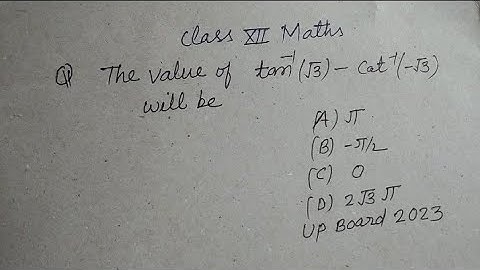 Class XII Maths
Q The value of tan⁻¹(√3) - Cat⁻¹(-√3)
will be
(A) π
(B) -π/2
(C) 0
(D) 2√3 π
UP Board 2023